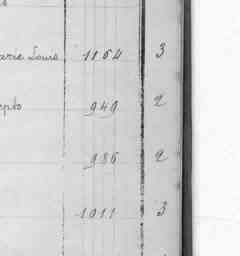 arie Louis 1164 3
eph 949 2
986 2
1011 3